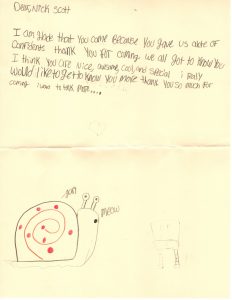 Dear, Nick Scott
I am glade that you came Because you gave us alote of
Confidents thank you for coming we all got to know you
I think you are nice, awsome, cool, and special i rally
would like to get to know you more thank you so much for
coming i want to talk more....
gary
meow